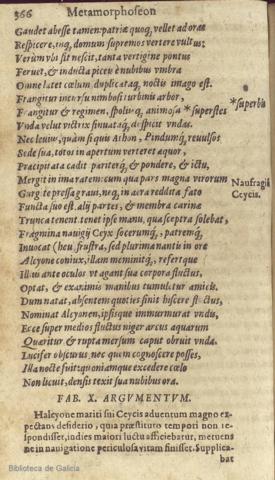 366 Metamorphoseon
Gaudet abesse tamen: patriæ quoq, vellet ad oras
Respicere, inq, domum supremos vertere vultus:
Verum vbi sit nescit, tanta vertigine pontus
Feruet, & inducta piceis è nubibus vmbra
Omne latet cœlum, duplicataq, noctis imago est.
Frangitur incursu nimbosi turbinis arbor,
Frangitur & regimen, spolijsq, animosa * superstes
*superbis
Vnda velut victrix sinuatasq, despicit vndas.
Nec leuius, quàm si quis Athon, Pindumq, reuulsos
Sede sua, totos in apertum verteret æquor,
Præcipitata cadit pariterq, & pondere, & ictu,
Mergit in ima ratem: cum qua pars magna virorum
Naufragiũ
Ceycis.
Gurgite pressa graui, neq, in aera reddita fato
Functa suo est. alij partes, & membra carinæ
Trunca tenent. tenet ipse manu, qua sceptra solebat,
Fragmina nauigij Ceyx socerumq,, patremq,
Inuocat (heu, frustra, sed plurima nantis in ore
Alcyone coniux, illam meminitq,, refertque
Illius ante oculos vt agant sua corpora fluctus,
Optat, & exanimis manibus tumuletur amicis.
Dum natat, absentem quoties sinit hiscere fluctus,
Nominat Alcyonen, ipsisque immurmurat vndis,
Ecce super medios fluctus niger arcus aquarum
Quæritur & rupta mersum caput obruit vnda.
Lucifer obscurus nec quem cognoscere posses,
Illa nocte fuit: quoniamque excedere cœlo
Non licuit, densis texit sua nubibus ora.
FAB. X. ARGVMENTVM.
Halcyone mariti sui Ceycis aduentum magno ex-
pectans desiderio, quia præstituto tempori non re-
spondisset, indies maiori luctu afficiebatur, metuens
ne in nauigatione periculosa vitam finisset. Supplica-
bat
Biblioteca de Galicia